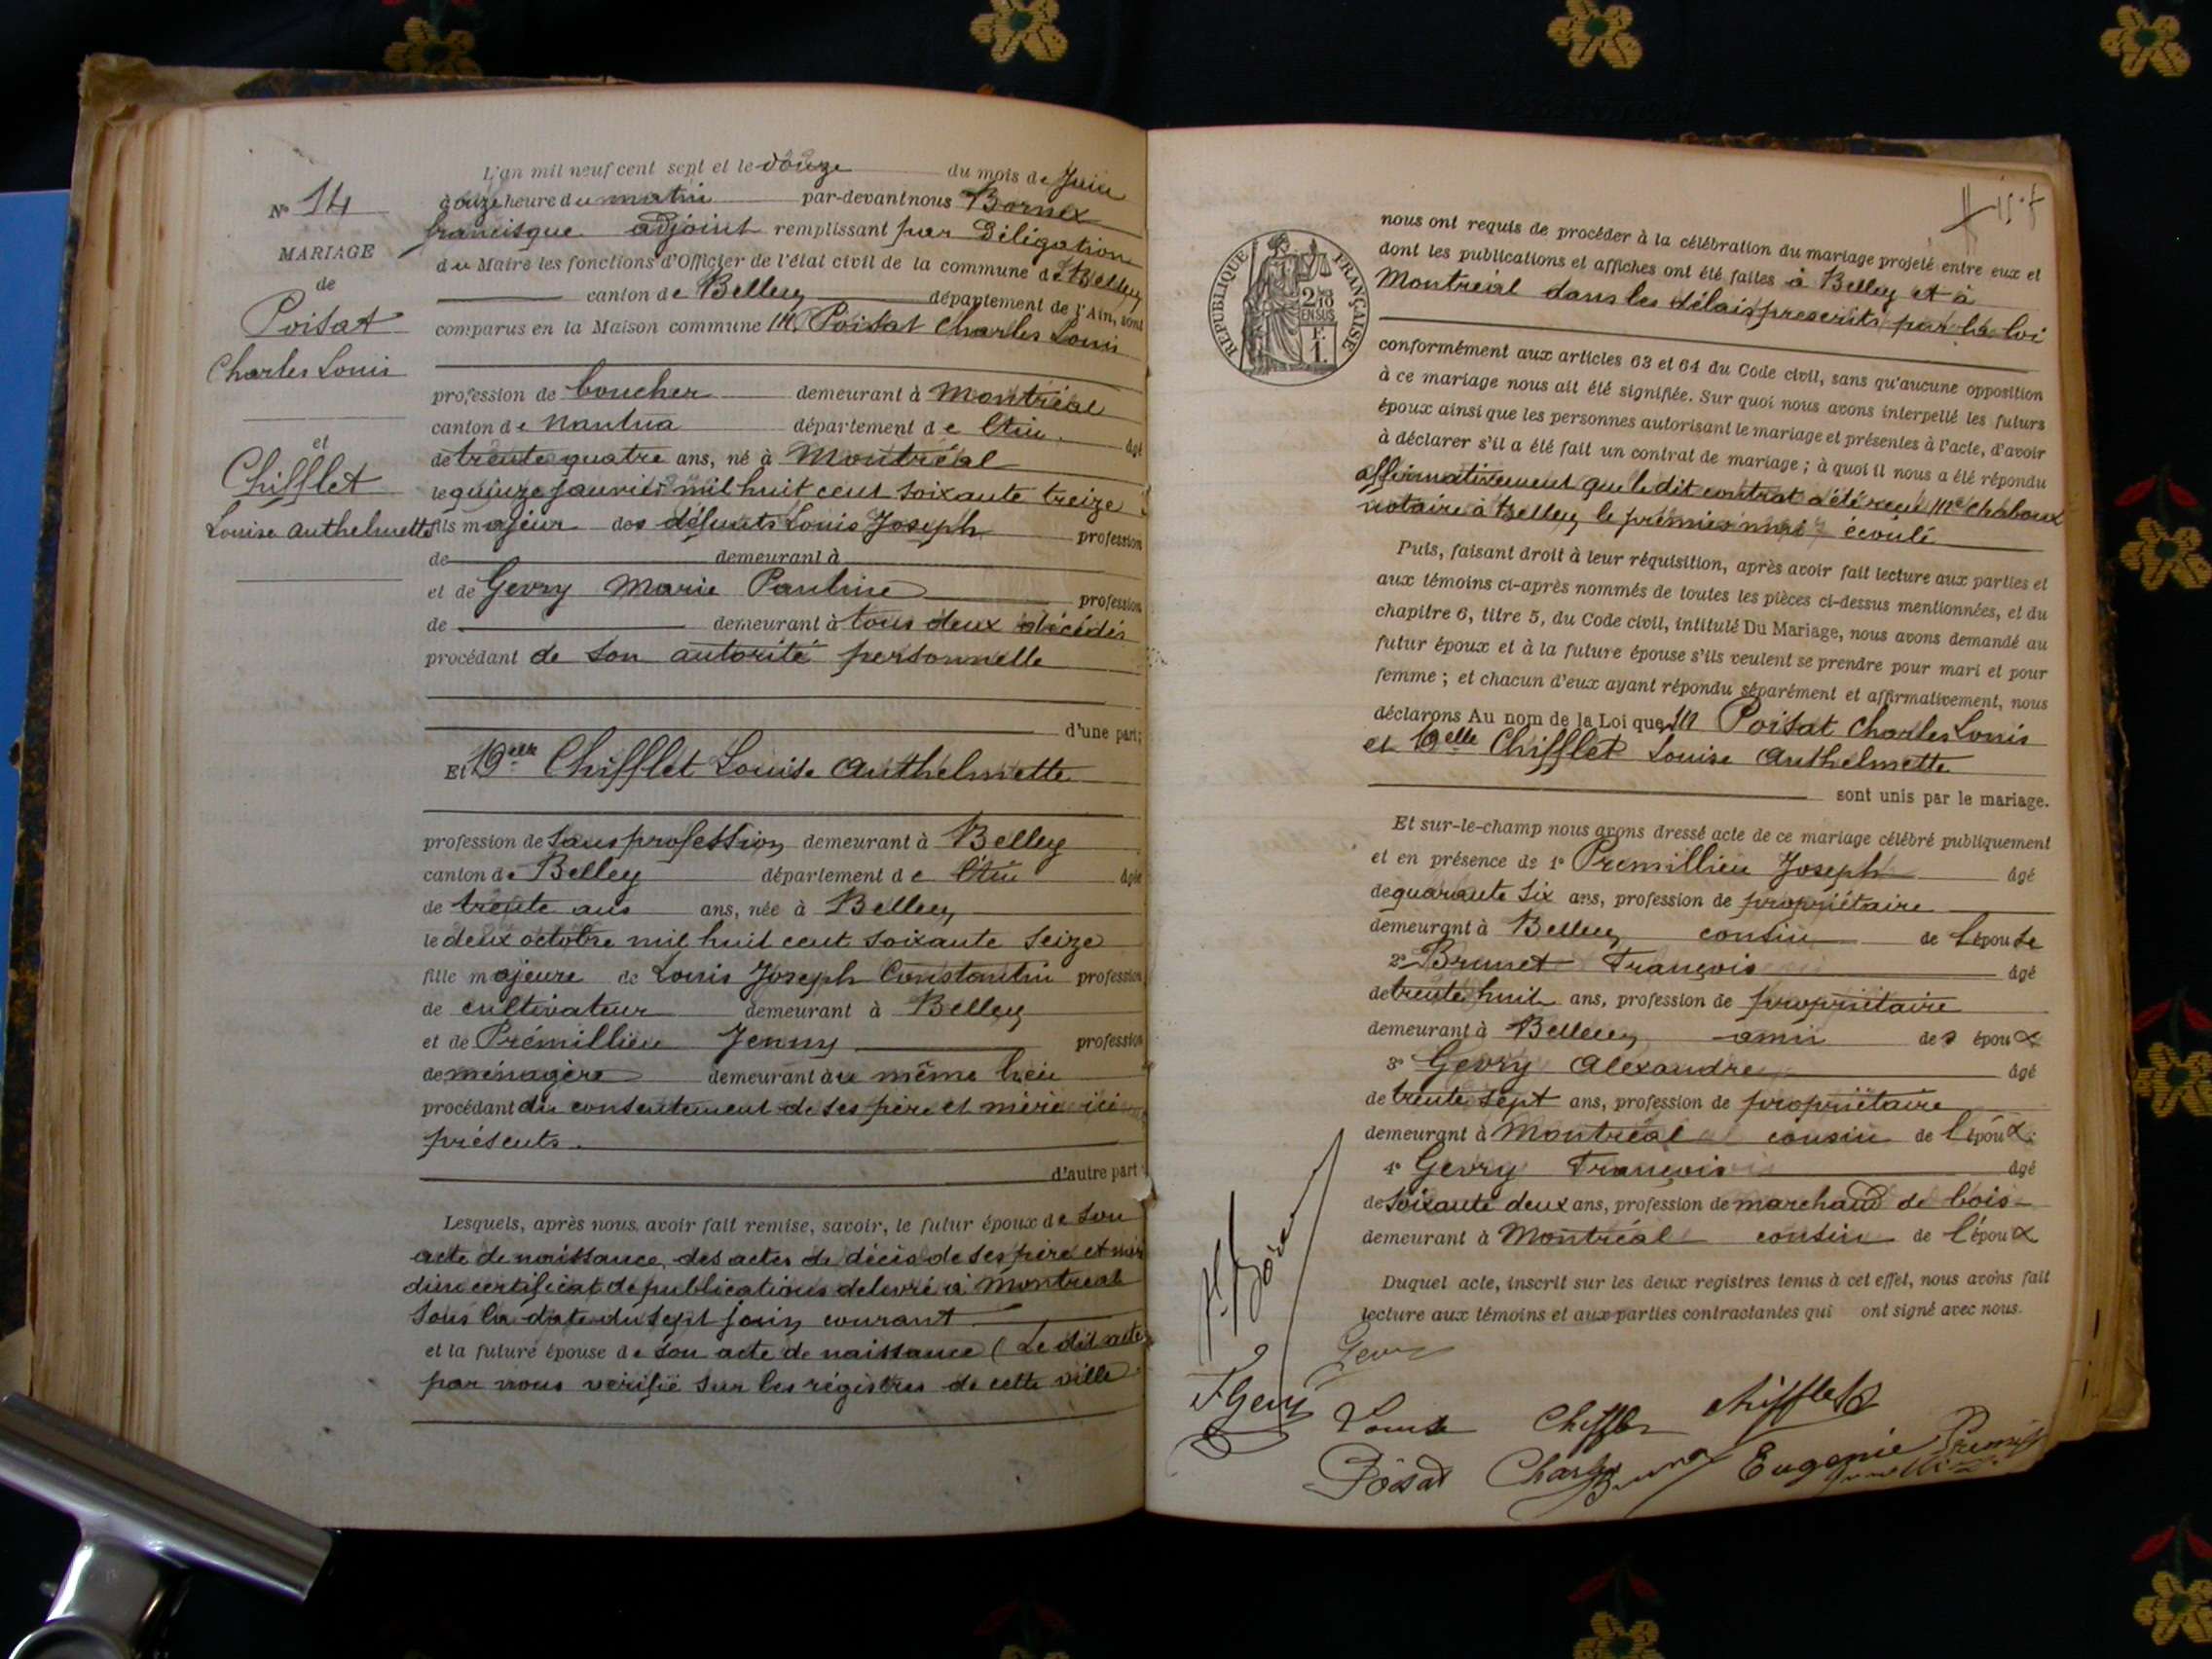 N° 14
MARIAGE
de
Poisat
Charles Louis
et
Chifflet
Louise Anthelmette
L'an mil neuf cent sept et le douze du mois de Juin
à onze heure du matin par-devant nous Bornex
francisque adjoint remplissant par Déligation
du Maire les fonctions d'Officier de l'état civil de la commune de Belley
canton de Belley département de l'Ain, sont
comparus en la Maison commune M. Poisat Charles Louis
profession de boucher demeurant à Montréal
canton de Nantua département de l'Ain âgé
de trente quatre ans, né à Montréal
le quinze janvier mil huit cent soixante treize
fils majeur des défunts Louis Joseph profession
de demeurant à
et de Gevry Marie Pauline profession
de demeurant à tous deux décédés
procédant de son autorité personnelle
d'une part;
Et Delle Chifflet Louise Anthelmette
profession de sans profession demeurant à Belley
canton de Belley département de l'Ain âgée
de trente ans ans, née à Belley
le deux octobre mil huit cent soixante seize
fille majeure de Louis Joseph Constantin profession
de cultivateur demeurant à Belley
et de Prémillieu Jenny profession
de ménagère demeurant au même lieu
procédant du consentement de ses père et mère ici
présents.
d'autre part
Lesquels, après nous avoir fait remise, savoir, le futur époux de son
acte de naissance, des actes de décès de ses père et mère
d'un certificat de publications délivré à Montréal
sous la date du sept juin courant
et la future épouse de son acte de naissance (Le dit acte
par nous vérifié sur les régistres de cette ville
RÉPUBLIQUE FRANÇAISE
2/10
EN SUS
F.
1.
nous ont requis de procéder à la célébration du mariage projeté entre eux et
dont les publications et affiches ont été faites à Belley et à
Montréal dans les délais prescrits par la loi
conformément aux articles 63 et 64 du Code civil, sans qu'aucune opposition
à ce mariage nous ait été signifiée. Sur quoi nous avons interpellé les futurs
époux ainsi que les personnes autorisant le mariage et présentes à l'acte, d'avoir
à déclarer s'il a été fait un contrat de mariage ; à quoi il nous a été répondu
affirmativement que le dit contrat a été reçu Me Chaboux
notaire à Belley le premier mai écoulé
Puis, faisant droit à leur réquisition, après avoir fait lecture aux parties et
aux témoins ci-après nommés de toutes les pièces ci-dessus mentionnées, et du
chapitre 6, titre 5, du Code civil, intitulé Du Mariage, nous avons demandé au
futur époux et à la future épouse s'ils veulent se prendre pour mari et pour
femme ; et chacun d'eux ayant répondu séparément et affirmativement, nous
déclarons Au nom de la Loi que M Poisat Charles Louis
et Delle Chifflet Louise Anthelmette
sont unis par le mariage.
Et sur-le-champ nous avons dressé acte de ce mariage célébré publiquement
et en présence de 1° Premillieu Joseph âgé
de quarante six ans, profession de propriétaire
demeurant à Belley cousin de l'épouse
2° Brunet François âgé
de trente huit ans, profession de propriétaire
demeurant à Belley ami des époux
3° Gevry Alexandre âgé
de trente sept ans, profession de propriétaire
demeurant à Montréal cousin de l'époux
4° Gevry François âgé
de soixante deux ans, profession de marchand de bois
demeurant à Montréal cousin de l'époux
Duquel acte, inscrit sur les deux registres tenus à cet effet, nous avons fait
lecture aux témoins et aux parties contractantes qui ont signé avec nous.
Gevry
F Gevry
Louise Chifflet Chifflet
Poisat Charles Brunet Eugenie